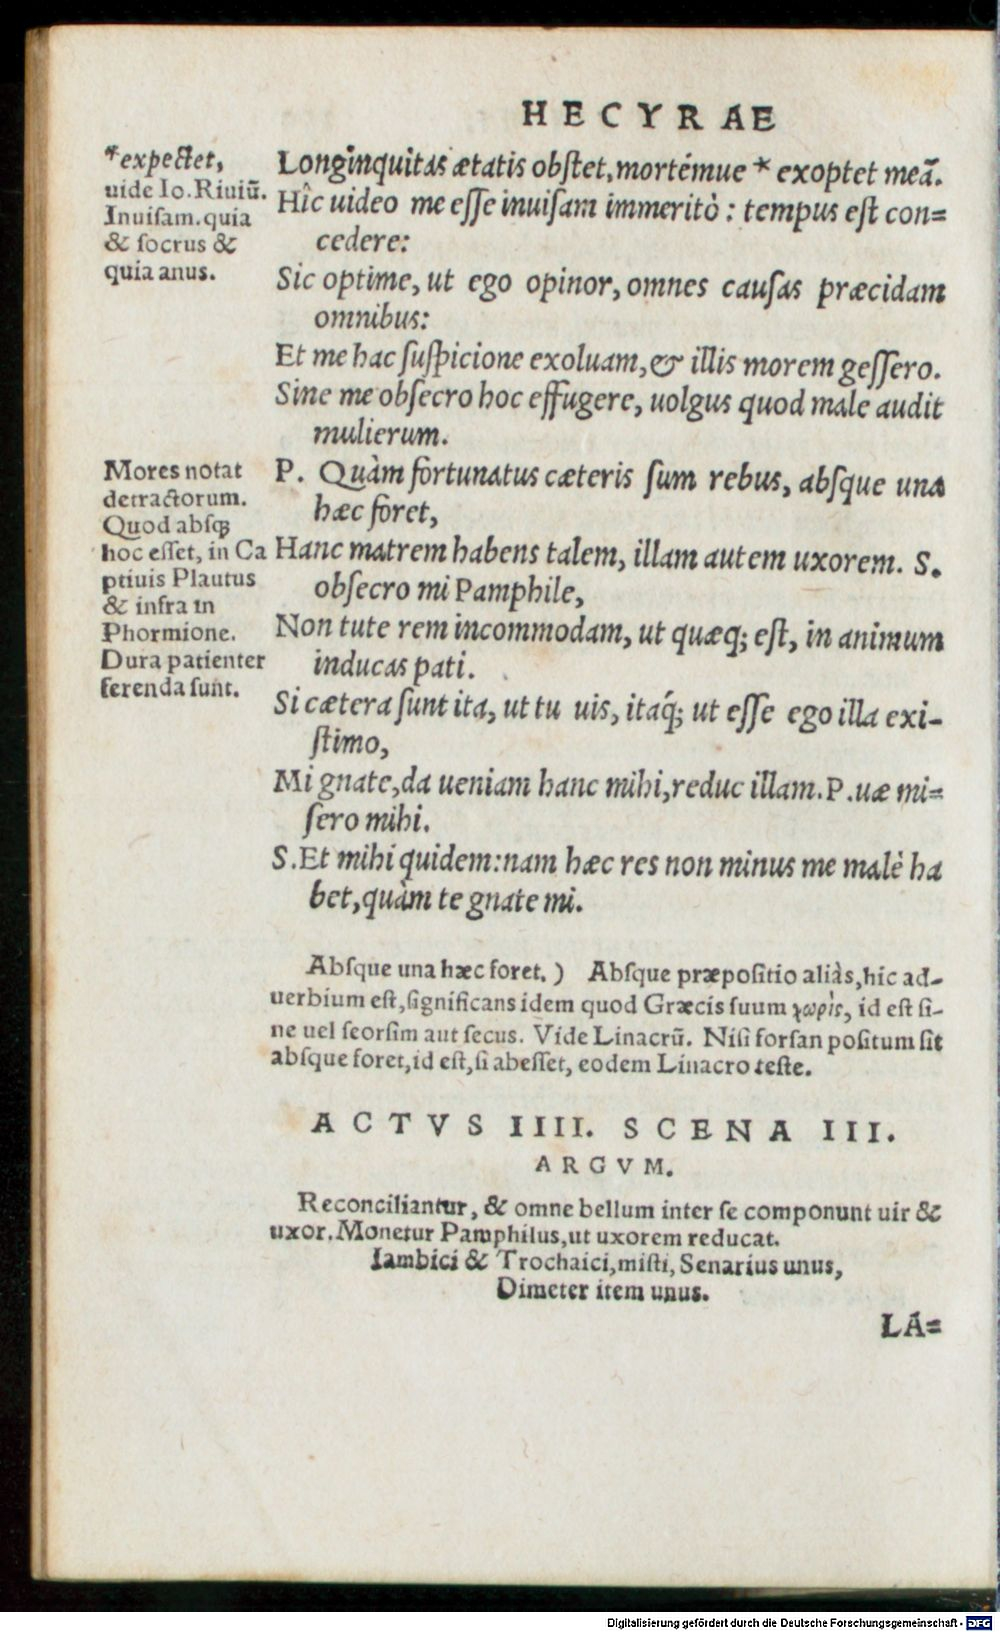 HECYRAE
*expectet,
uide Io. Riuiũ.
Inuisam. quia
& socrus &
quia anus.
Longinquitas ætatis obſtet, mortémue * exoptet meã.
Hîc uideo me eſſe inuiſam immeritò : tempus eſt con=
cedere:
Sic optime, ut ego opinor, omnes cauſas præcidam
omnibus:
Et me hac ſuſpicione exoluam, & illis morem geſſero.
Sine me obſecro hoc effugere, uolgus quod male audit
mulierum.
Mores notat
detractorum.
Quod absꝗ
hoc eſſet, in Ca
ptiuis Plautus
& infra in
Phormione.
Dura patienter
ferenda ſunt.
P. Quàm fortunatus cæteris ſum rebus, abſque una
hæc foret,
Hanc matrem habens talem, illam autem uxorem. S.
obſecro mi Pamphile,
Non tute rem incommodam, ut quæq; eſt, in animum
inducas pati.
Si cætera ſunt ita, ut tu uis, itaq́; ut eſſe ego illa exi-
ſtimo,
Mi gnate, da ueniam hanc mihi, reduc illam. P. uæ mi=
ſero mihi.
S. Et mihi quidem: nam hæc res non minus me malè ha
bet, quàm te gnate mi.
Abſque una hæc foret. ) Abſque præpoſitio aliàs, hic ad-
uerbium eſt, ſignificans idem quod Græcis ſuum χωρὶς, id eſt ſi-
ne uel ſeorſim aut ſecus. Vide Linacrũ. Niſi forſan poſitum ſit
abſque foret, id eſt, ſi abeſſet, eodem Linacro teſte.
ACTVS IIII. SCENA III.
ARGVM.
Reconciliantur, & omne bellum inter ſe componunt uir &
uxor. Monetur Pamphilus, ut uxorem reducat.
Iambici & Trochaici, miſti, Senarius unus,
Dimeter item unus.
LA=
Digitalisierung gefördert durch die Deutsche Forschungsgemeinschaft - DFG